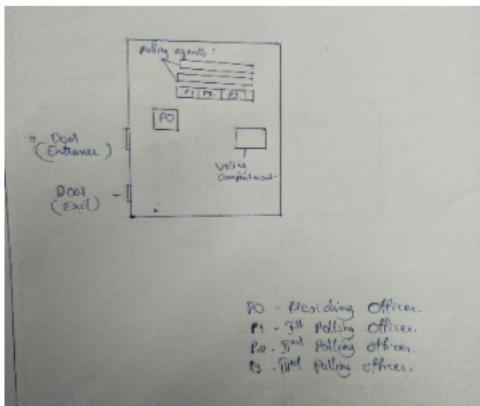 polling agents:
P1 P2 P3
PO
Door
(Entrance)
Voting
Compartment
Door
(Exit)
PO - Presiding Officer.
P1 - Ist Polling Officer.
P2 - IInd Polling Officer.
P3 - IIIrd Polling officer.